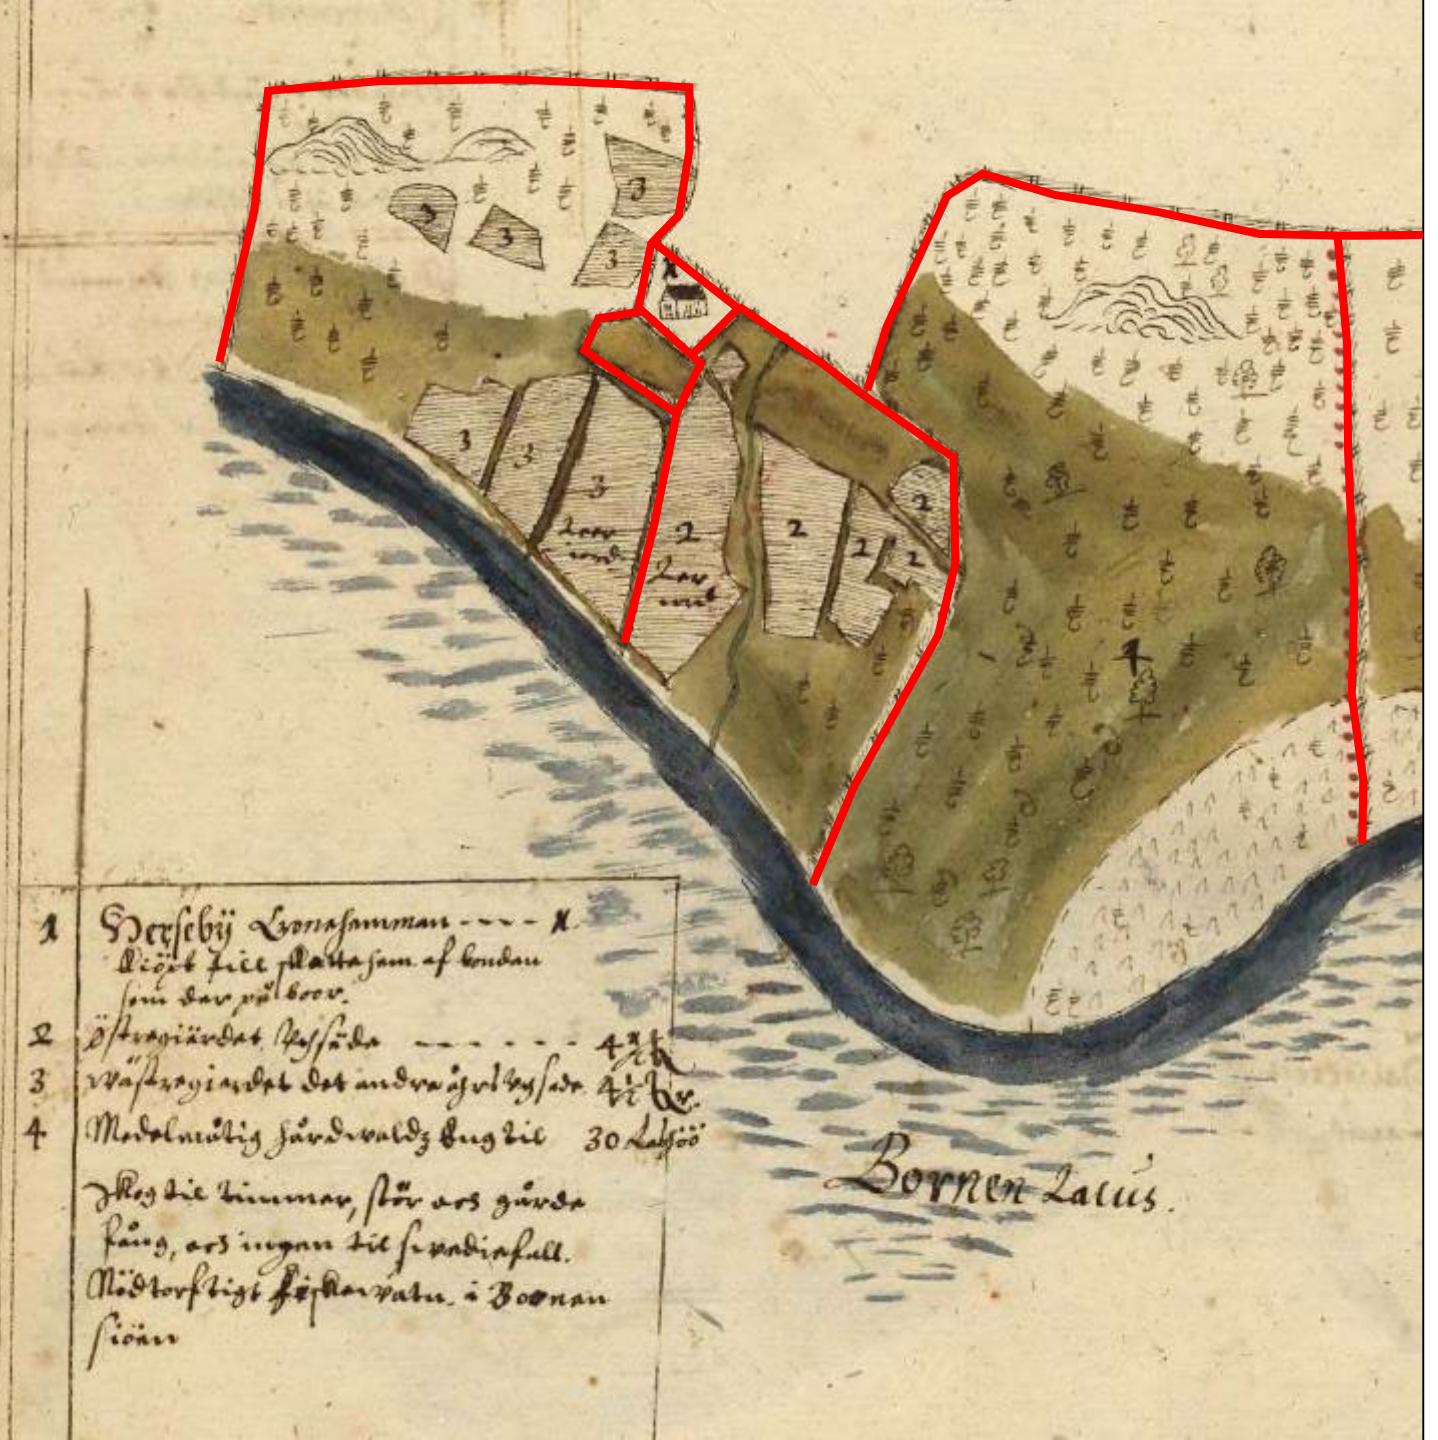 3
3
3
3
1
3
3
3
Leer
iord
2
Ler
iord
2
2
2
2
4
1 Herseby Cronehemman - - - - 1.
kiöpt till skatte hem. af bonden
som der på boor.
2 Östregiärdet. Uthsäde - - - - - - 4
3 Wästregierdet det andra åhrs Uthsäde 4½
4 Medelmåtig hårdwaldz Eng til 30 Laß höö
Skog til timmer, stör och gärde
fång, och ingen til swediefall.
Nödtorftigt fiskewatn i Boonen
siöen
Bornen Lacus.